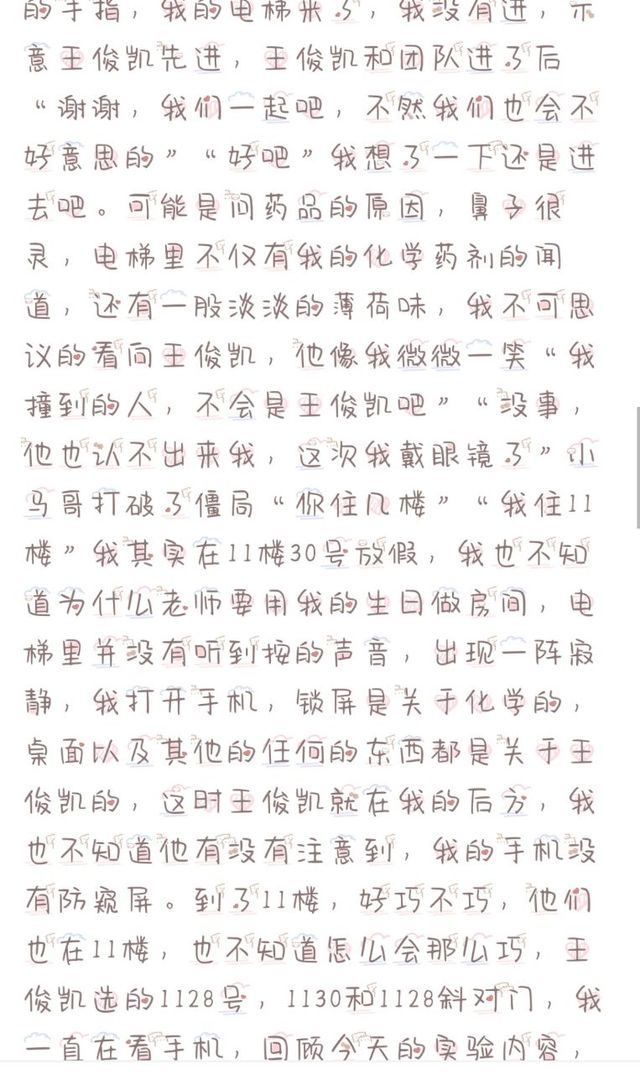 的手指，我的电梯来了，我没有进，示
意王俊凯先进，王俊凯和团队进了后
“谢谢，我们一起吧，不然我们也会不
好意思的”“好吧”我想了一下还是进
去吧。可能是问药品的原因，鼻子很
灵，电梯里不仅有我的化学药剂的闻
道，还有一股淡淡的薄荷味，我不可思
议的看向王俊凯，他像我微微一笑“我
撞到的人，不会是王俊凯吧”“没事，
他也认不出来我，这次我戴眼镜了”小
马哥打破了僵局“你住几楼”“我住11
楼”我其实在11楼30号放假，我也不知
道为什么老师要用我的生日做房间，电
梯里并没有听到按的声音，出现一阵寂
静，我打开手机，锁屏是关于化学的，
桌面以及其他的任何的东西都是关于王
俊凯的，这时王俊凯就在我的后方，我
也不知道他有没有注意到，我的手机没
有防窥屏。到了11楼，好巧不巧，他们
也在11楼，也不知道怎么会那么巧，王
俊凯选的1128号，1130和1128斜对门，我
一直在看手机，回顾今天的实验内容，